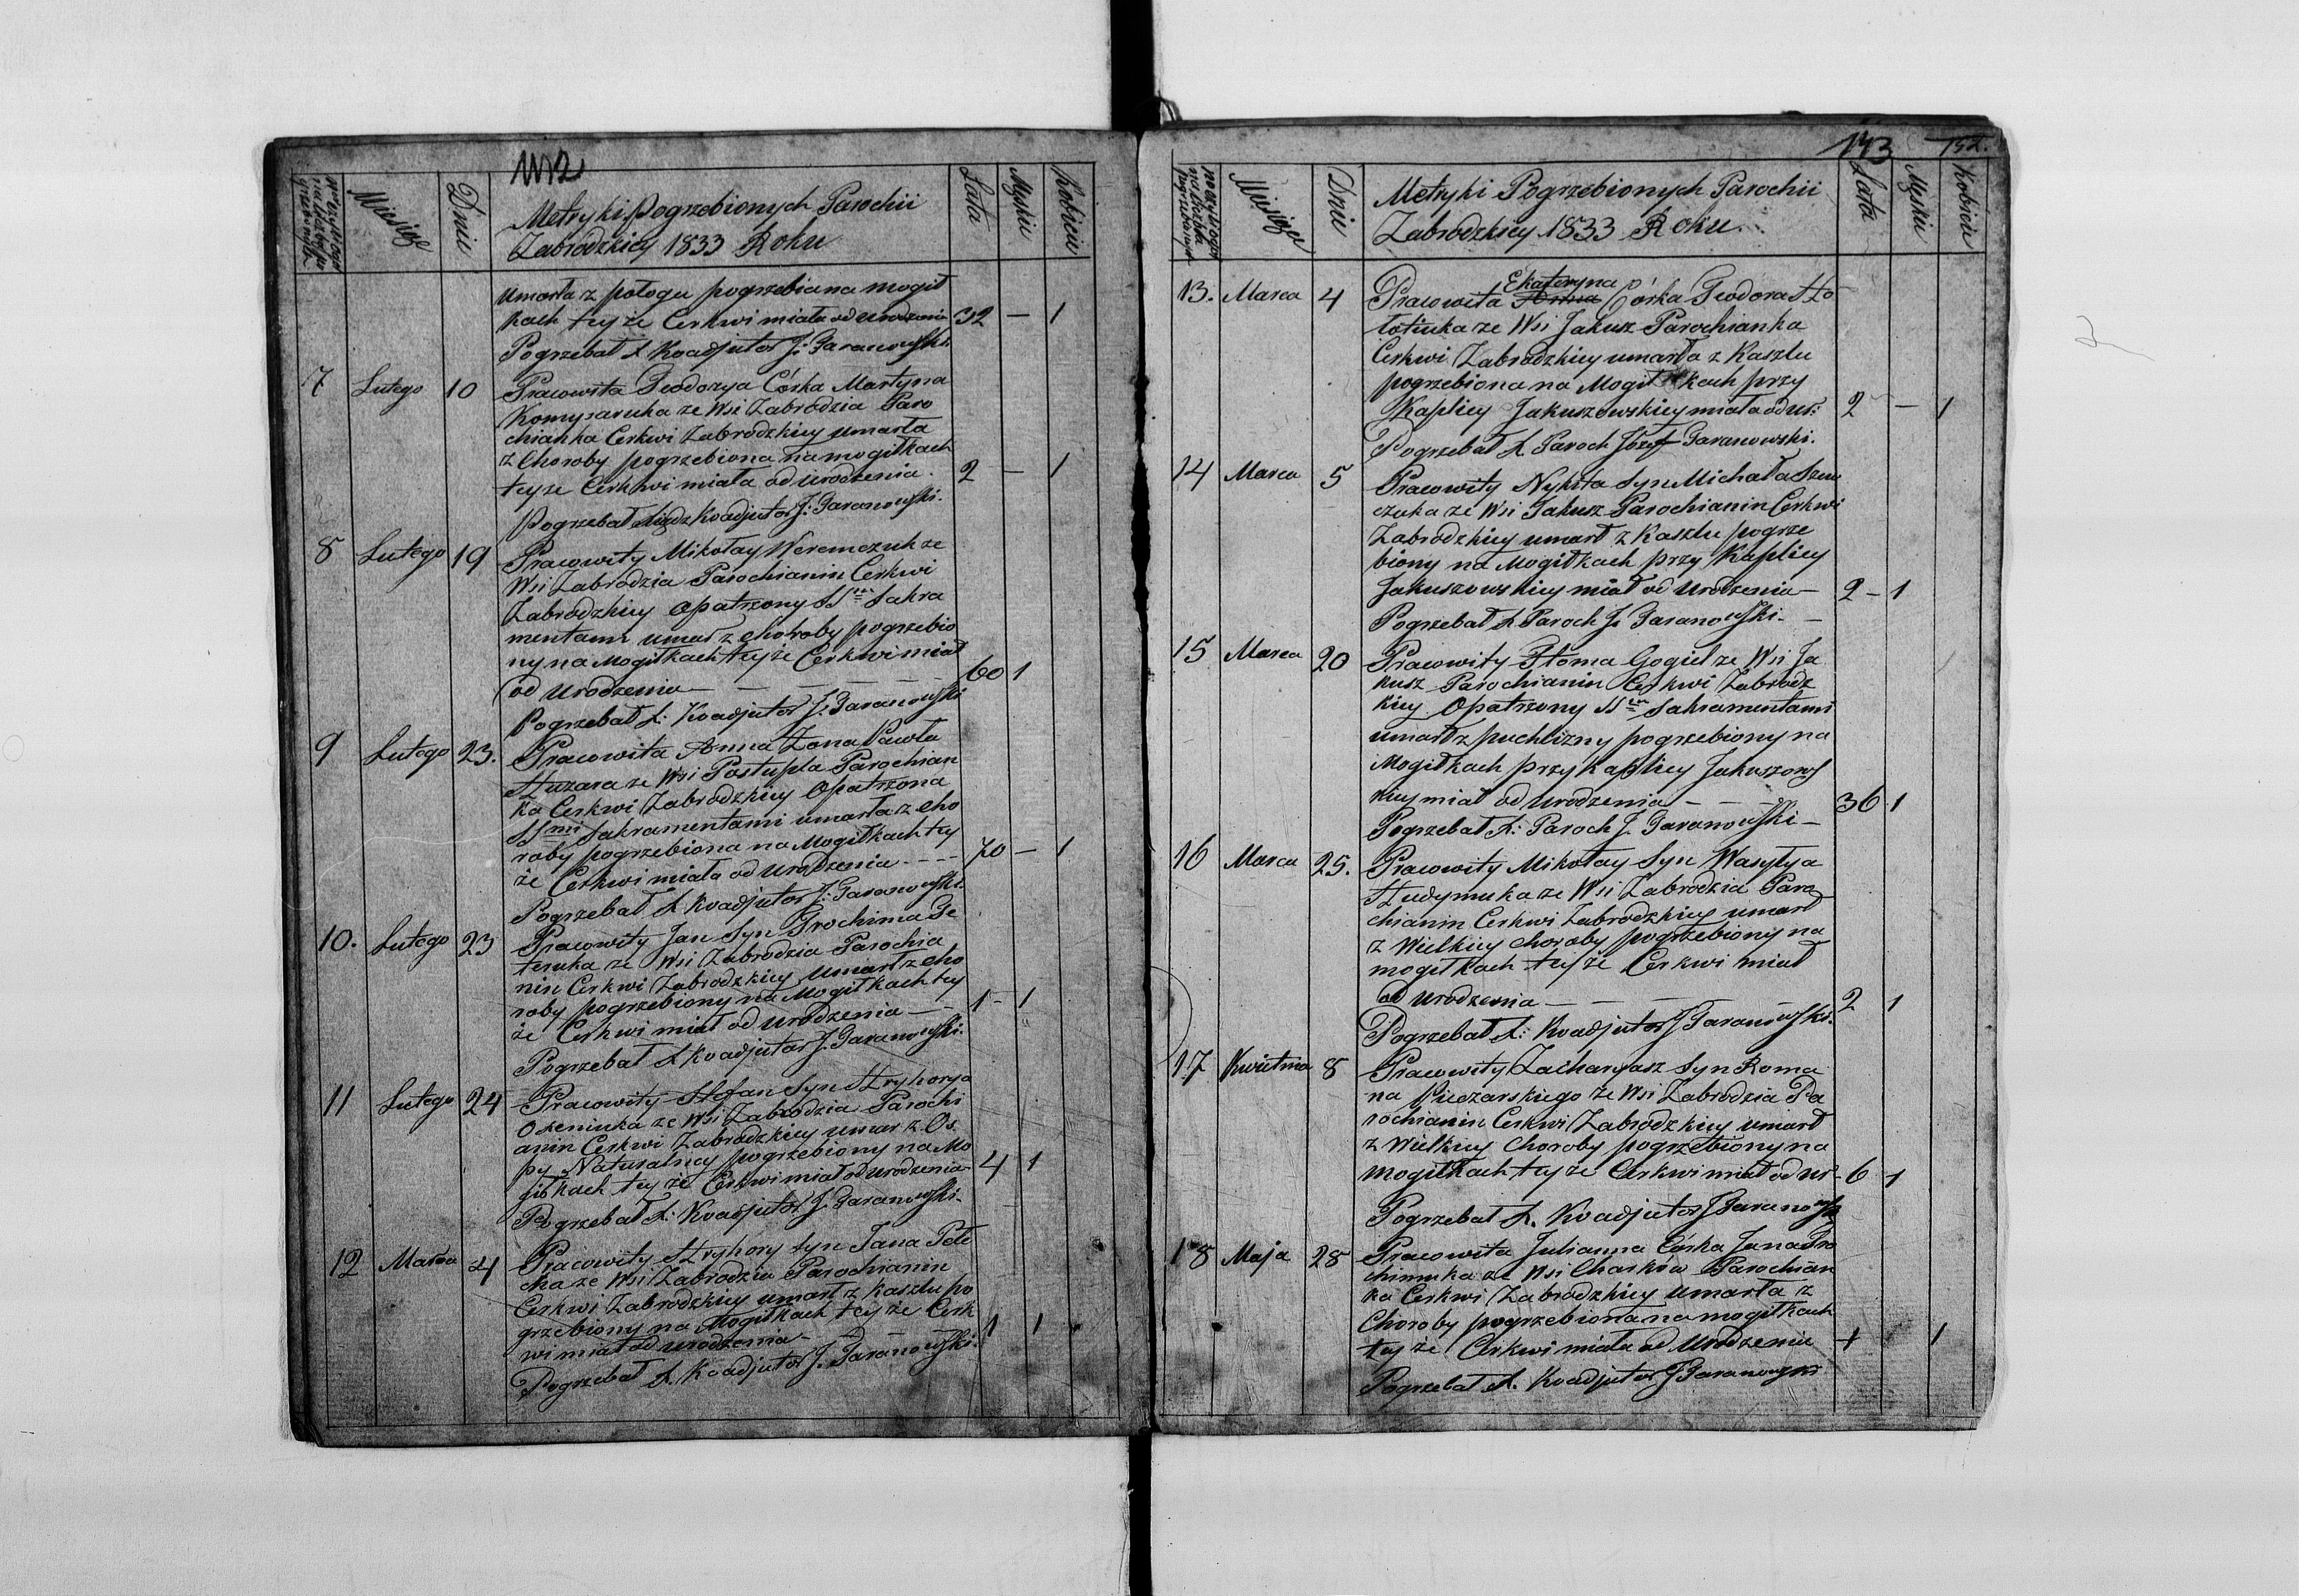 142
Miesiąc
Dnie
Metryki Pogrzebionych Parochii
Zabrodzkiey 1833 Roku
Lata
Męskie
Kobiece
umarła z połogu pogrzebiana mogił
kach teyże Cerkwi miała od urodzenia 32 — 1
Pogrzebał X Koadjutor J: Baranowski
7 Lutego 10 Pracowita Teodozya Córka Martyna
Komysaruka ze Wsi Zabrodzia Paro
chianka Cerkwi Zabrodzkiey umarła
z Choroby pogrzebiona na mogiłkach
teyze Cerkwi miała od urodzenia 2 — 1
Pogrzebał Xiądz Koadjutor J: Baranowski.
8 Lutego 19 Pracowity Mikołay Weremczuk ze
Wsi Zabrodzia Parochianin Cerkwi
Zabrodzkiey Opatrzony SSmi Sakra
mentami umar z choroby pogrzebio
ny na Mogiłkach teyże Cerkwi miał
od Urodzenia — 60 1
Pogrzebał X: Koadjutor J. Baranowski
9 Lutego 23. Pracowita Anna Zona Pawła
ze Wsi Postupla Parochian
ka Cerkwi Zabrodzkiey Opatrzona
SSmi Sakramentami umarła z cho
roby pogrzebiona na Mogiłkach tey
że Cerkwi miała od urodzenia - - - - 70 — 1
Pogrzebał X Koadjutor J: Baranowski.
10. Lutego 23 Pracowity Jan Syn Trochima Pe
teruka ze Wsi Zabrodzia Parochia
nin Cerkwi Zabrodzkiey umarł z cho
roby pogrzebiony na Mogiłkach tey
że Cerkwi miał od urodzenia — 1 - 1
Pogrzebał X Koadjutor J. Baranowski.
11 Lutego 24 Pracowity Stefan Syn Hryhorya
Ozeniuka ze Wsi Zabrodzia Parochi
anin Cerkwi Zabrodzkiey umar z Os
py Naturalney pogrzebiony na Mo
giłkach teyże Cerkwi miał od urodzenia 4 1
Pogrzebał X: Koadjutor J. Baranowski.
12 Marca 4 Pracowity Hryhory Syn Jana Pete
cha ze Wsi Zabrodzia Parochianin
Cerkwi Zabrodzkiey umarł z kaszlu po
grzebiony na Mogiłkach teyże Cerk
wi miał od urodzenia — 1 1
Pogrzebał X. Koadjutor J. Baranowski.
143 152.
Miesiące
Dnie
Metryki Pogrzebionych Parochii
Zabrodzkiey 1833 Roku.
Lata
Męskie
Kobiece
Ekateryna
13. Marca 4 Pracowita Anna Córka Teodora Ho
łotiuka ze Wsi Jakusz Parochianka
Cerkwi Zabrodzkiey umarła z Kaszlu
pogrzebiona na Mogiłkach przy
Kaplicy Jakuszowskiey miała od ur: 2 — 1
Pogrzebał X Paroch Józef Baranowski.
14 Marca 5 Pracowity Nykita Syn Michała Szew
czuka ze Wsi Jakusz Parochianin Cerkwi
Zabrodzkiey umarł z Kaszlu pogrze
biony na Mogiłkach przy Kaplicy
Jakuszowskiey miał od Urodzenia — 2 — 1
Pogrzebał X Paroch J. Baranowski —
15 Marca 20 Pracowity Floma Gogiel ze Wsi Ja
kusz Parochianin Cerkwi Zabrodz
kiey Opatrzony SSmi Sakramentami
umarł z puchlizny pogrzebiony na
Mogiłkach przy kaplicy Jakuszows
kiey miał od urodzenia — 36 1
Pogrzebał X: Paroch J. Baranowski —
16 Marca 25. Pracowity Mikołay Syn Wasylya
ze Wsi Zabrodzia Paro
chianin Cerkwi Zabrodzkiey umarł
z Wielkiey choroby pogrzebiony na
mogiłkach teyże Cerkwi miał
od urodzenia — 2 1
Pogrzebał X: Koadjutor J Baranowski.
17 Kwietnia 8 Pracowity Zacharyasz Syn Roma
na Pieczarskiego ze Wsi Zabrodzia Pa
rochianin Cerkwi Zabrodzkiey umarł
z Wielkiey Choroby pogrzebiony na
mogiłkach teyże Cerkwi miał od ur - 6 1
Pogrzebał X. Koadjutor J Baranowski
18 Maja 28 Pracowita Julianna Córka Jana Tro
chimuka ze Wsi Charków Parochian
ka Cerkwi Zabrodzkiey umarła z
Choroby pogrzebiona na mogiłkach
teyże Cerkwi miała od Urodzenia 1 1
Pogrzebał X. Koadjutor J Baranowski